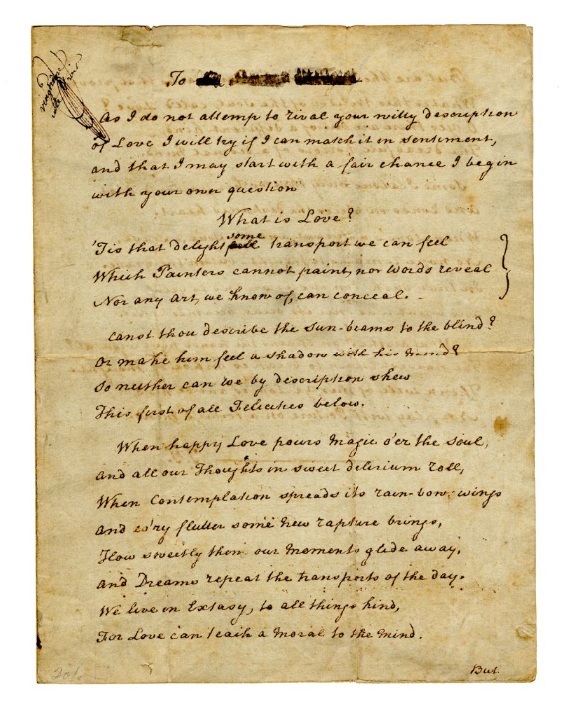 To
As I do not attemp to rival your witty description
of Love I will try if I can match it in sentiment,
and that I may start with a fair chance I begin
with your own question
What is Love?
'Tis that delightsome transport we can feel
Which Painters cannot paint, nor words reveal
Nor any art, we know of, can conceal. -
Canst thou describe the Sun-beams to the blind?
Or make him feel a shadow with his mind?
So neither can we by description shew
This first of all Felicities below.
When happy Love pours magic o'er the Soul,
And all our Thoughts in sweet delirium roll,
When Contemplation spreads its rain-bow wings
And ev'ry flutter some new rapture brings,
How sweetly then our moments glide away,
And Dreams repeat the transports of the day.
We live in Extasy, to all things kind,
For Love can teach a moral to the mind.
But